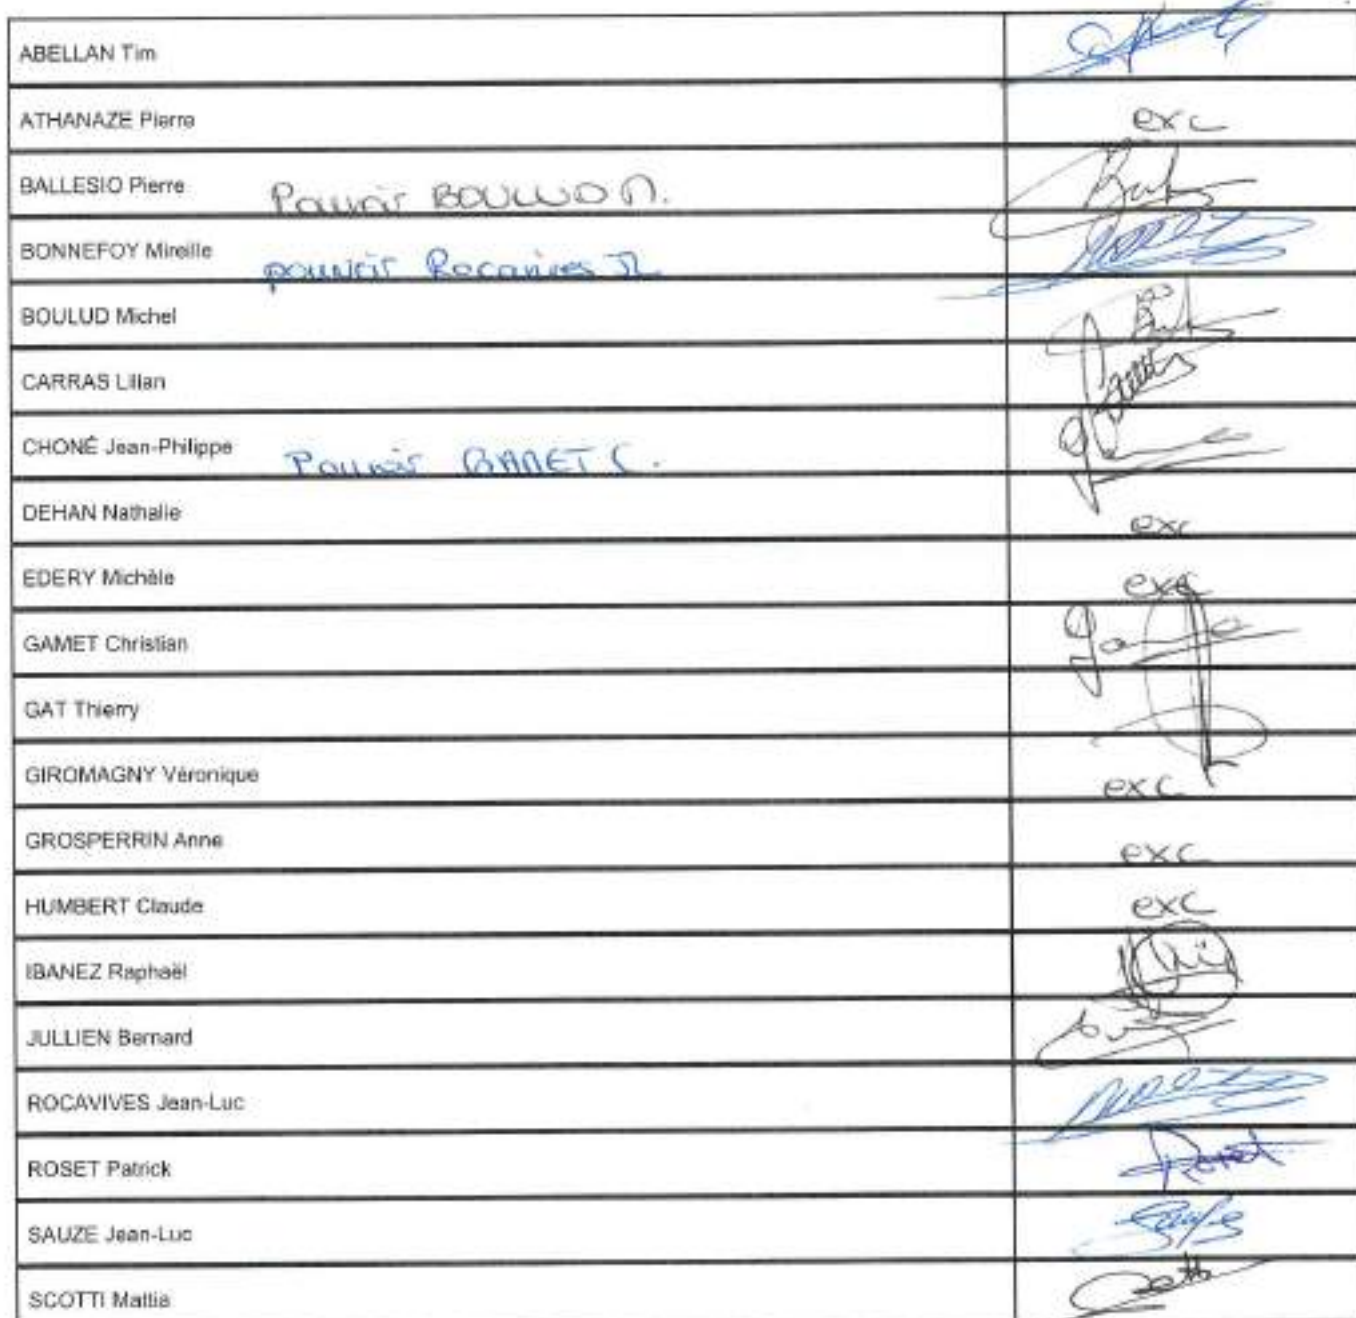 ABELLAN Tim
ATHANAZE Pierre exc
BALLESIO Pierre Pouvoir BOULUD M.
BONNEFOY Mireille pouvoir Rocavives JL
BOULUD Michel
CARRAS Lilian
CHONÉ Jean-Philippe Pouvoir GAMET C.
DEHAN Nathalie exc
EDERY Michèle exc
GAMET Christian
GAT Thierry
GIROMAGNY Véronique exc
GROSPERRIN Anne exc
HUMBERT Claude exc
IBANEZ Raphaël
JULLIEN Bernard
ROCAVIVES Jean-Luc
ROSET Patrick Roset
SAUZE Jean-Luc
SCOTTI Mattia